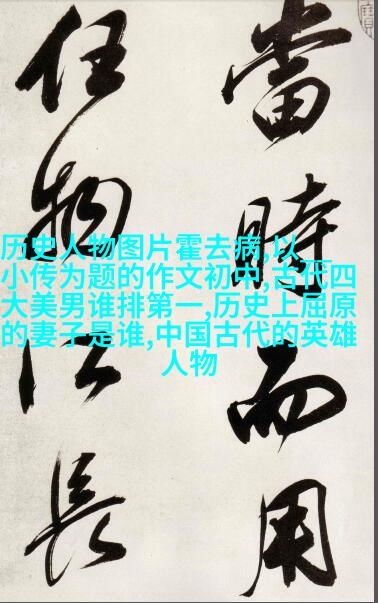 當時而用
任物長
历史人物图片霍去病,以__
小传为题的作文初中,古代四
大美男谁排第一,历史上屈原
的妻子是谁,中国古代的英雄
人物